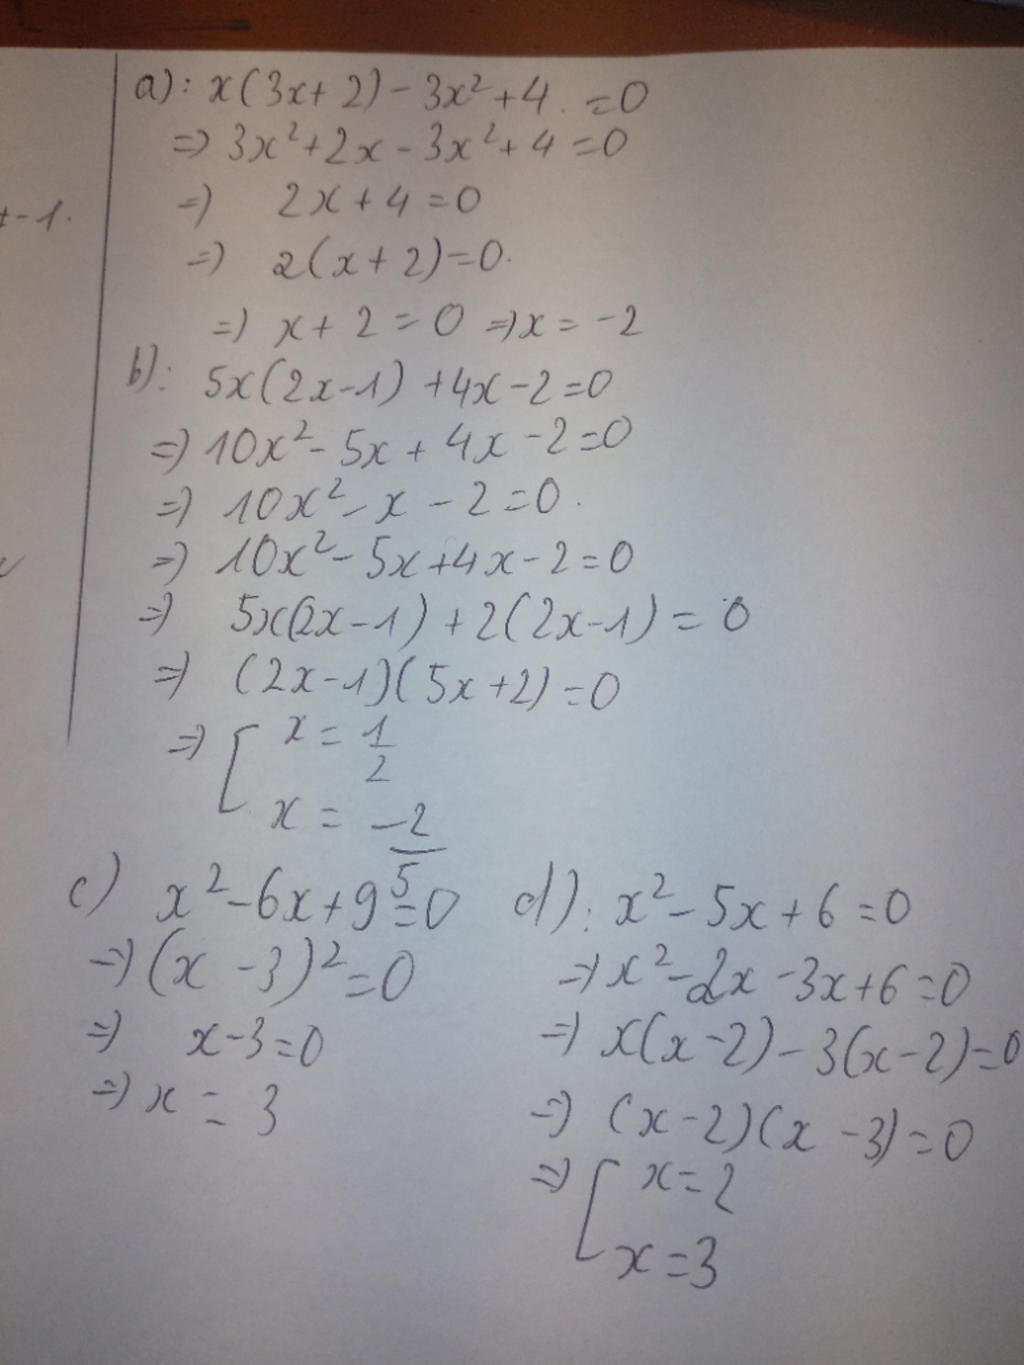 a): x(3x+2) - 3x² + 4 . = 0
=> 3x² + 2x - 3x² + 4 = 0
=> 2x + 4 = 0
=> 2(x+2) = 0.
=> x + 2 = 0 => x = -2
b): 5x(2x-1) + 4x - 2 = 0
=> 10x² - 5x + 4x - 2 = 0
=> 10x² - x - 2 = 0.
=> 10x² - 5x + 4x - 2 = 0
=> 5x(2x-1) + 2(2x-1) = 0
=> (2x-1)(5x+2) = 0
=> [ x = 1/2
x = -2/5
c) x² - 6x + 9 = 0
=> (x-3)² = 0
=> x - 3 = 0
=> x = 3
d): x² - 5x + 6 = 0
=> x² - 2x - 3x + 6 = 0
=> x(x-2) - 3(x-2) = 0
=> (x-2)(x-3) = 0
=> [ x = 2
x = 3
-1.